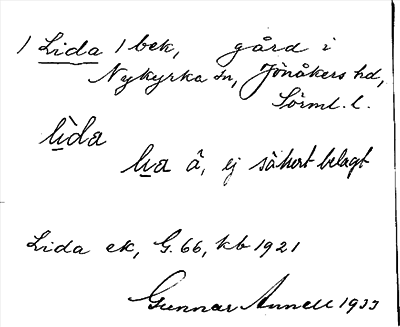 / Lida / bek, gård i
Nykyrka sn, Jönåkers hd,
Sörml. l.
lìda
lia â, ej säkert belagt
Lida ek, G. 66, kb 1921
Gunnar Annell 1933